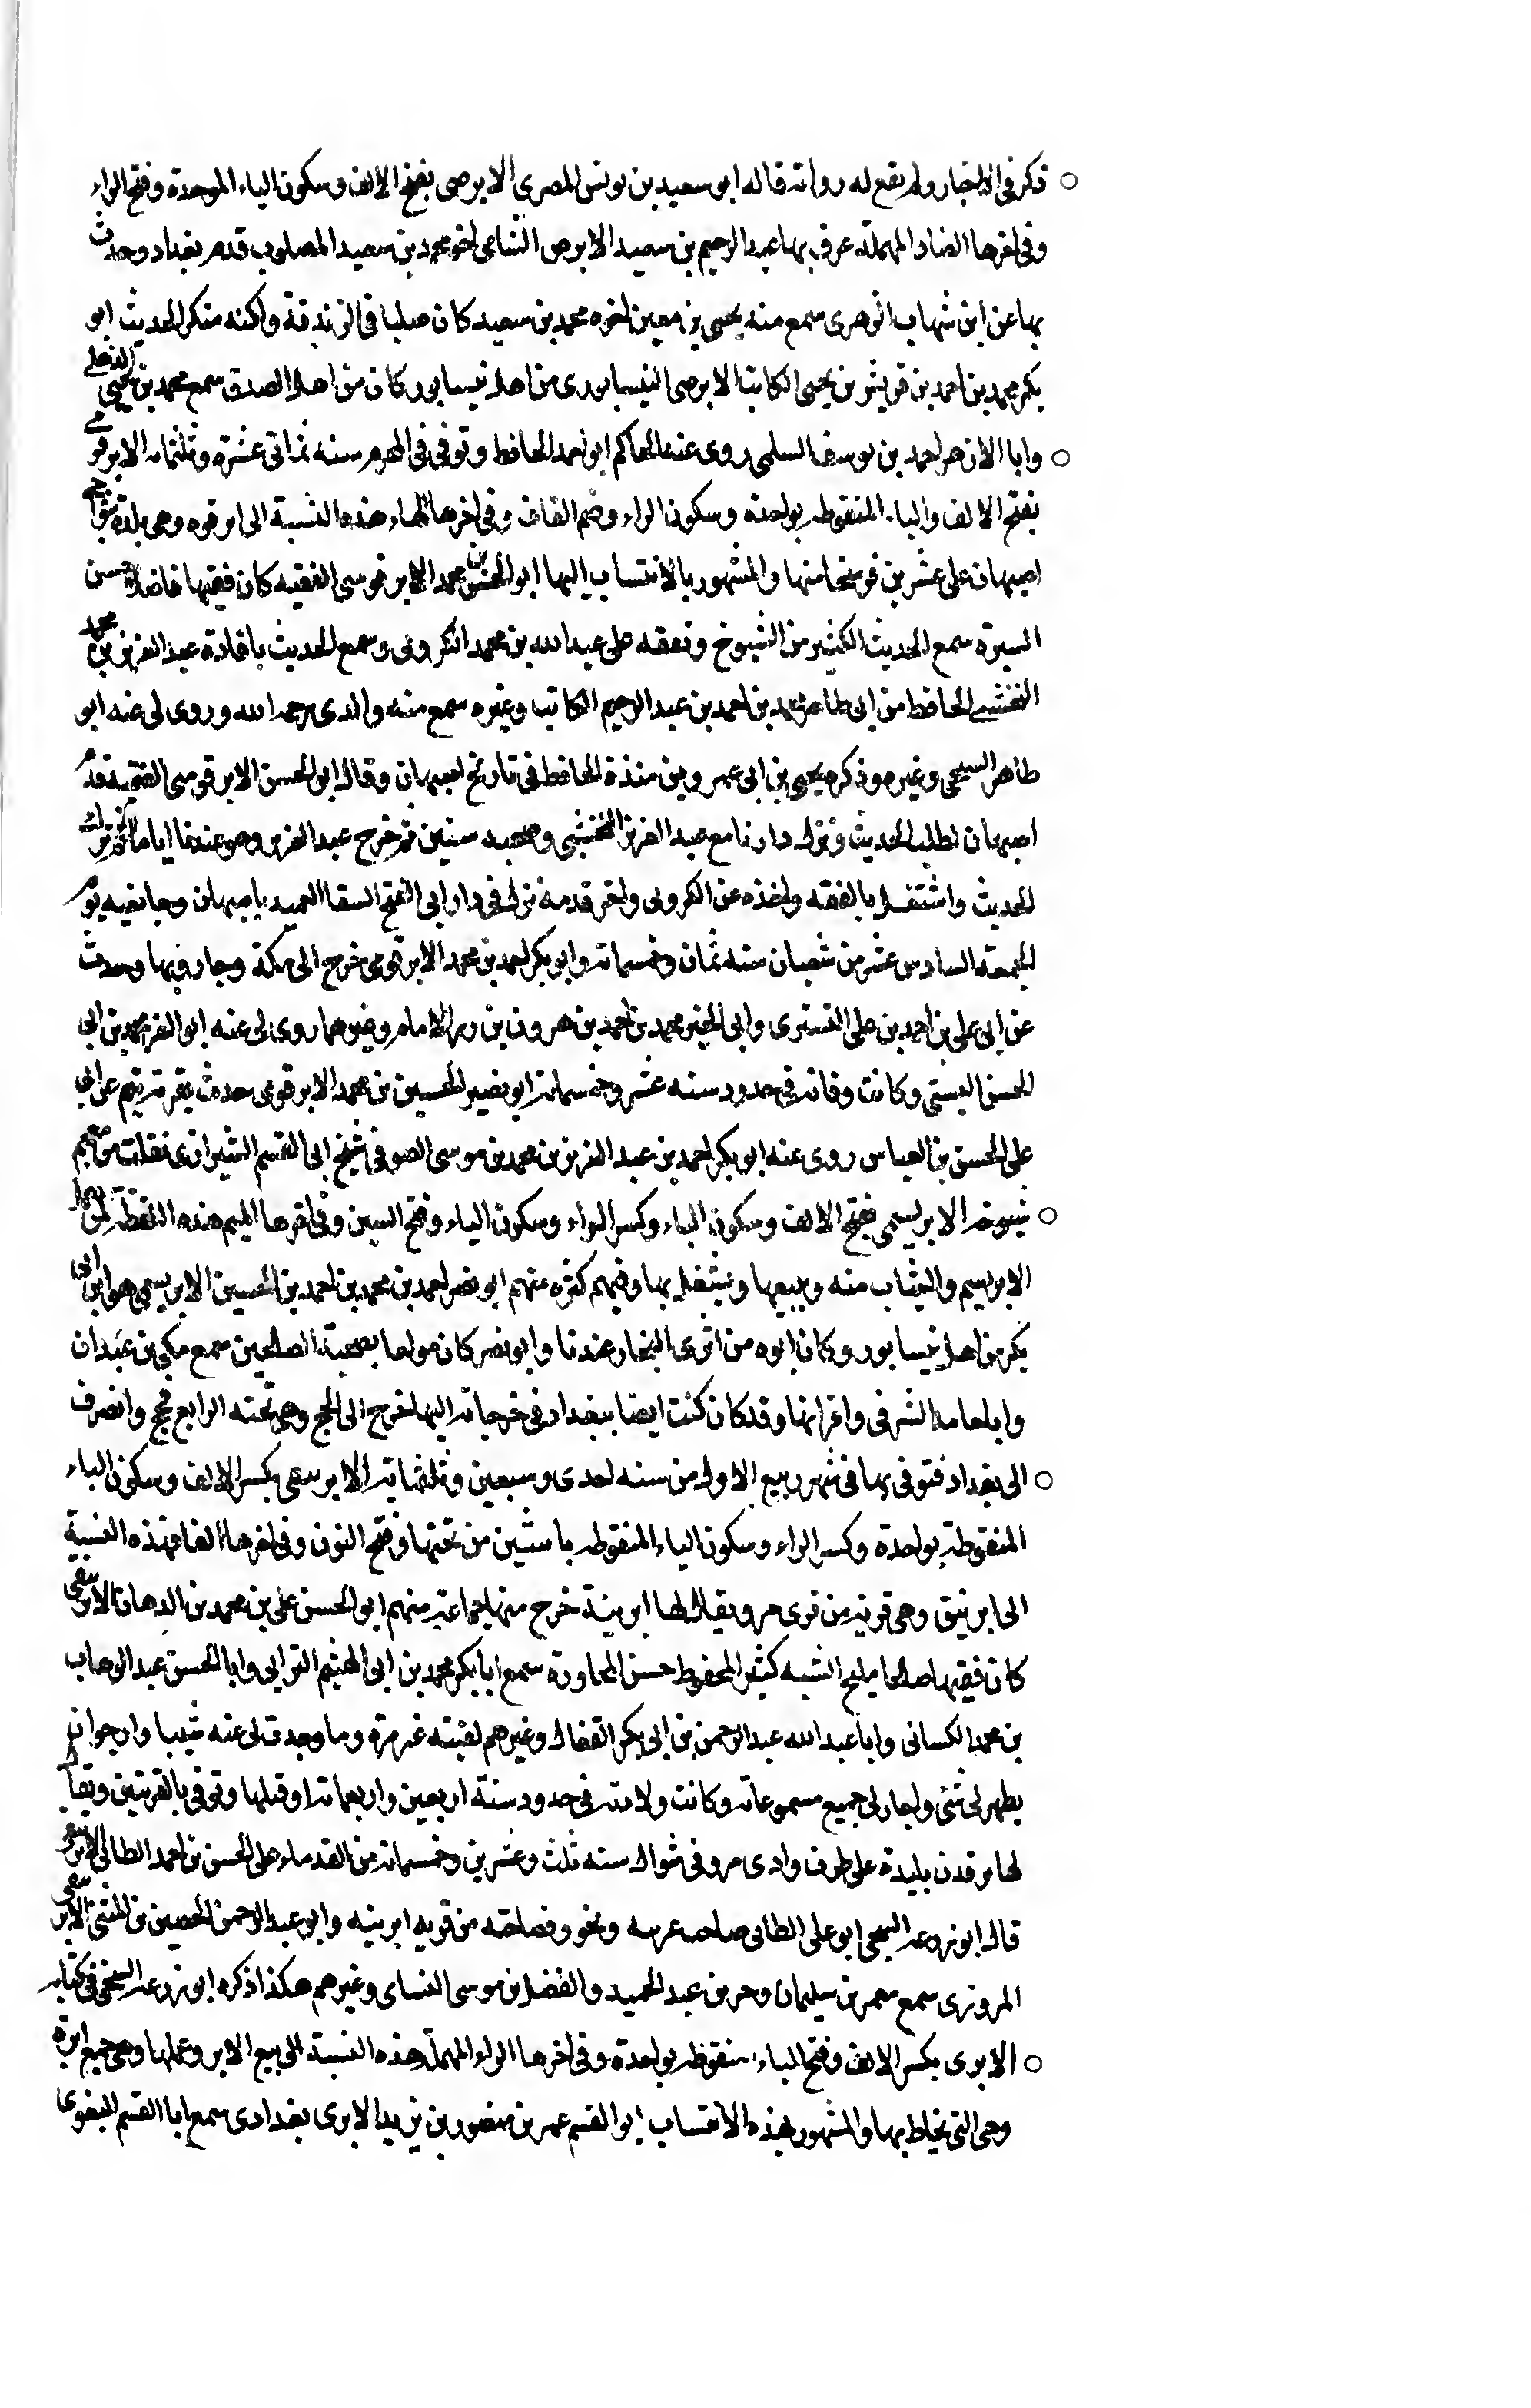 ذكر فى الاخبار ولم يقع له رواية قاله ابو سعيد بن يونس المصرى الابرصى بفتح الالف وسكون الباء الموحدة وفتح الراء
وفى اخرها الصاد المهملة عرف بها عبد الرحيم بن سعيد الابرص الشامى اخو محمد بن سعيد المصلوب قدم بغداد وحدث
بها عن ابن شهاب الزهرى سمع منه يحيى بن معين اخوه محمد بن سعيد كان صلبا فى الزندقة ولكنه منكر الحديث ابو
بكر محمد بن احمد بن قريش بن يحيى الكاتب الابرصى النيسابورى من اهل نيسابور كان من اهل الصدق سمع محمد بن يحيى الذهلى
وابا الازهر احمد بن يوسف السلمى روى عنه الحاكم ابو احمد الحافظ وتوفى فى المحرم سنه ثمانى عشرة وثلثمايه الابرقوهى
بفتح الالف والباء المنقوطه بواحدة وسكون الراء وضم القاف وفى اخرها الهاء هذه النسبة الى ابرقوه وهى بلدة بنواحى
اصبهان على عشرين فرسخا منها والمشهور بالانتساب اليها ابو الحسن بن محمد الابرقوهى الفقيه كان فقيها فاضلا حسن
السيرة سمع الحديث الكثير من الشيوخ وتفقه على عبد الله بن محمد الكرونى وسمع الحديث بافادة عبد العزيز بن محمد
النخشبى الحافظ من ابى طاهر محمد بن احمد بن عبد الرحيم الكاتب وغيره سمع منه والدى رحمه الله وروى لى عنه ابو
طاهر السبخى وغيره وذكره يحيى بن ابى عمرو بن منده الحافظ فى تاريخ اصبهان وقال ابو الحسن الابرقوهى الفقيه قدم
اصبهان لطلب الحديث ونزل دارنا مع عبد العزيز النخشبى وصحبه سنين ثم خرج عبد العزيز وهو عندنا اياما ثم ترك
الحديث واشتغل بالفقه واخذه عن الكرونى واخر قدمة نزل فى دار ابى الفتح السقا العميد باصبهان وجا نعيه يوم
الجمعة السادس عشر من شعبان سنه ثمان وخمسمايه وابو بكر احمد بن محمد الابرقوهى خرج الى مكة وجاور بها وحدث
عن ابى على بن احمد بن على التسترى وابى الخير محمد بن احمد بن هرون بن ررا الامام وغيرهما روى لى عنه ابو الفرج محمد بن ابى
الحسن البستى وكانت وفاته فى حدود سنه عشر وخمسمايه ابو نصير الحسين بن محمد الابرقوهى حدث عن ابى
على الحسن بن العباس روى عنه ابو بكر احمد بن عبد العزيز بن محمد بن موسى الصوفى شيخ ابى القسم الشيرازى نقلت من معجم
شيوخه الابريسمى بفتح الالف وسكون الباء وكسر الراء وسكون الياء وفتح السين وفى اخرها الميم هذه اللفظة لمن يعمل
الابريسم والثياب منه ويبيعها ويشتغل بها وفيهم كثره منهم ابو نصر احمد بن محمد بن احمد بن الحسين الابريسمى هو ابن ابى
بكر من اهل نيسابور وكان ابوه من اثرى التجار عندنا وابو نصر كان مولعا بصحبة الصالحين سمع مكى بن عبدان
وابا حامد الشرقى واقرانهما وقد كان كتب ايضا ببغداد فى خرجاته اليها خرج الى الحج وهى حجته الرابع فحج وانصرف
الى بغداد فتوفى بها فى شهر ربيع الاول من سنه احدى وسبعين وثلثمايه الابرينقى بكسر الالف وسكون الباء
المنقوطة بواحدة وكسر الراء وسكون الياء المنقوطه باثنتين من تحتها وفتح النون وفى اخرها القاف هذه النسبة
الى ابرينق وهى قرية من قرى مرو ويقال لها ابرينة خرج منها جماعة منهم ابو الحسن على بن محمد بن الدهان الابرينقى
كان فقيها صالحا مليح الشيبه كثير المحفوظ حسن المحاورة سمع ابا بكر محمد بن ابى الهيثم الترابى وابا الحسن عبد الوهاب
بن محمد الكسائى وابا عبد الله عبد الرحمن بن ابى بكر القفال وغيرهم لقيته غير مرة وما وجدت لى عنه شيئا وارجو ان
يظهر لى شئ واجاز لى جميع مسموعاته وكانت ولادته فى حدود سنة اربعين واربعمايه او قبلها وتوفى بالقريتين ويقال
لها بر قدن بليدة على طرف وادى مرو فى شوال سنه ثلث وعشرين وخمسمايه من القدماء على الحسن بن احمد الطائى الابرينقى
قال ابو زرعه السبخى ابو على الطائى صاحب عربيه ونحو وفصاحه من قريه ابرينه وابو عبد الرحمن الحصين بن المثنى الابرينقى
المروزى سمع معمر بن سليمان وجرير بن عبد الحميد والفضل بن موسى السينانى وغيرهم هكذا ذكره ابو زرعه السبخى فى كتابه
الابرى بكسر الالف وفتح الباء المنقوطه بواحدة وفى اخرها الراء المهملة هذه النسبة الى بيع الابر وعملها وهى جمع ابرة
وهى التى يخاط بها والمشهور بهذه الانتساب ابو القسم عمر بن منصور بن يزيد الابرى بغدادى سمع ابا القسم البغوى